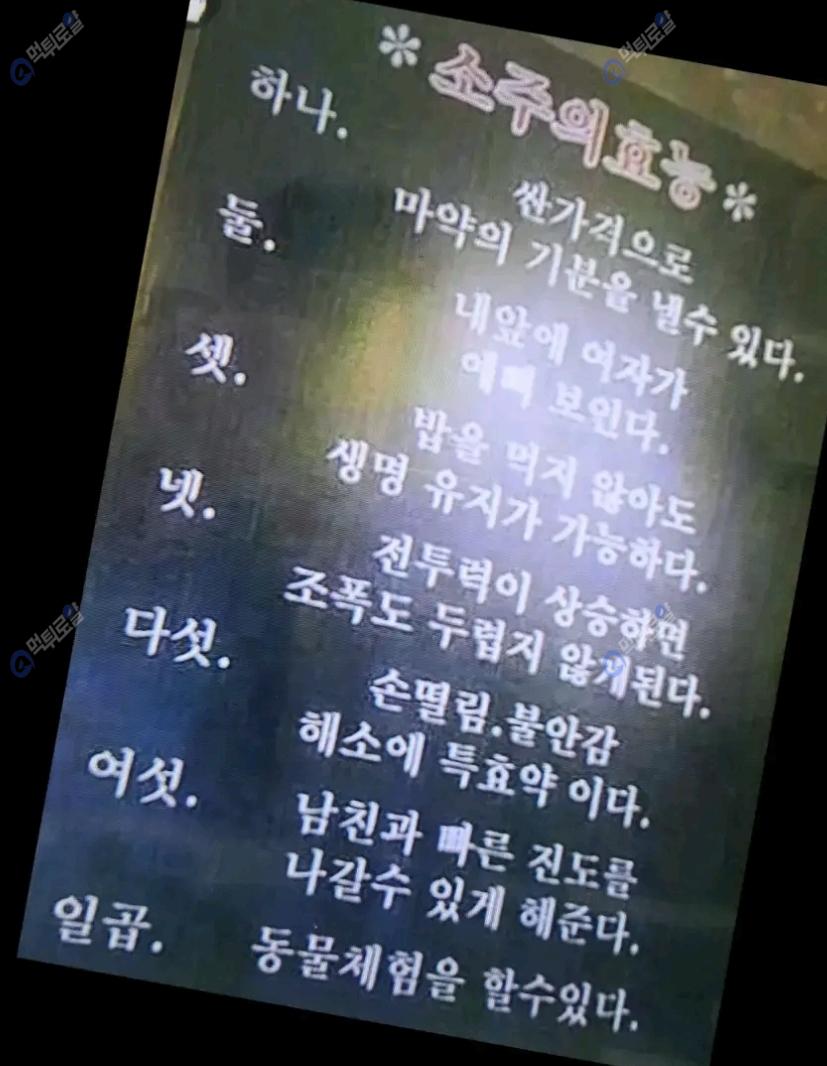 *소주의효능*
하나.
싼가격으로
마약의 기분을 낼수 있다.
둘.
내앞에 여자가
예뻐 보인다.
셋.
밥을 먹지 않아도
생명 유지가 가능하다.
넷.
전투력이 상승하면
조폭도 두렵지 않게된다.
다섯.
손떨림.불안감
해소에 특효약 이다.
여섯.
남친과 빠른 진도를
나갈수 있게 해준다.
일곱.
동물체험을 할수있다.
먹튀로얄
먹튀로얄
먹튀로얄
먹튀로얄